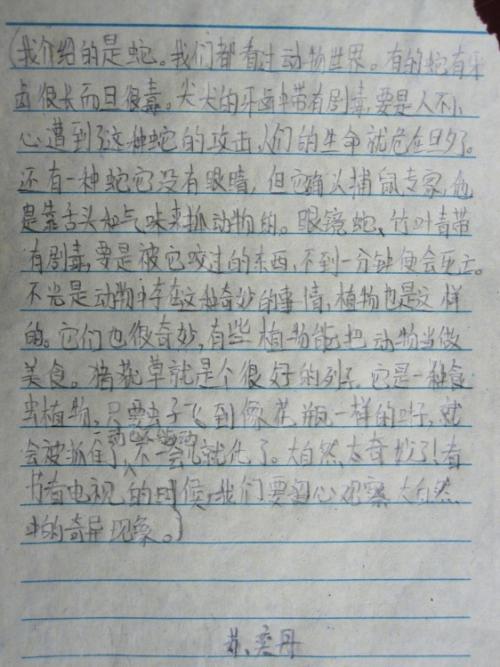 (我介绍的是蛇。我们都看过动物世界。有的蛇有牙
齿很长而且很毒。尖尖的牙齿中带有剧毒,要是人不小
心遭到了这种蛇的攻击,人们的生命就危在旦夕了。
还有一种蛇它没有眼睛,但它确以捕鼠专家,他
是靠舌头和气味来抓动物的。眼镜蛇、竹叶青带
有剧毒,要是被它咬过的东西,不到一分钟便会死亡。
不光是动物中存在这种奇妙的事情,植物也是这样
的。它们也很奇妙,有些植物能把动物当做
美食。猪笼草就是个很好的列子,它是一种食
虫植物,只要虫子飞到像花瓶一样的叶子,就
会被抓住了,不一会儿就化了。大自然太奇妙了看
书看电视的时候,我们要留心观察大自然
中的奇异现象。)
苏奕丹